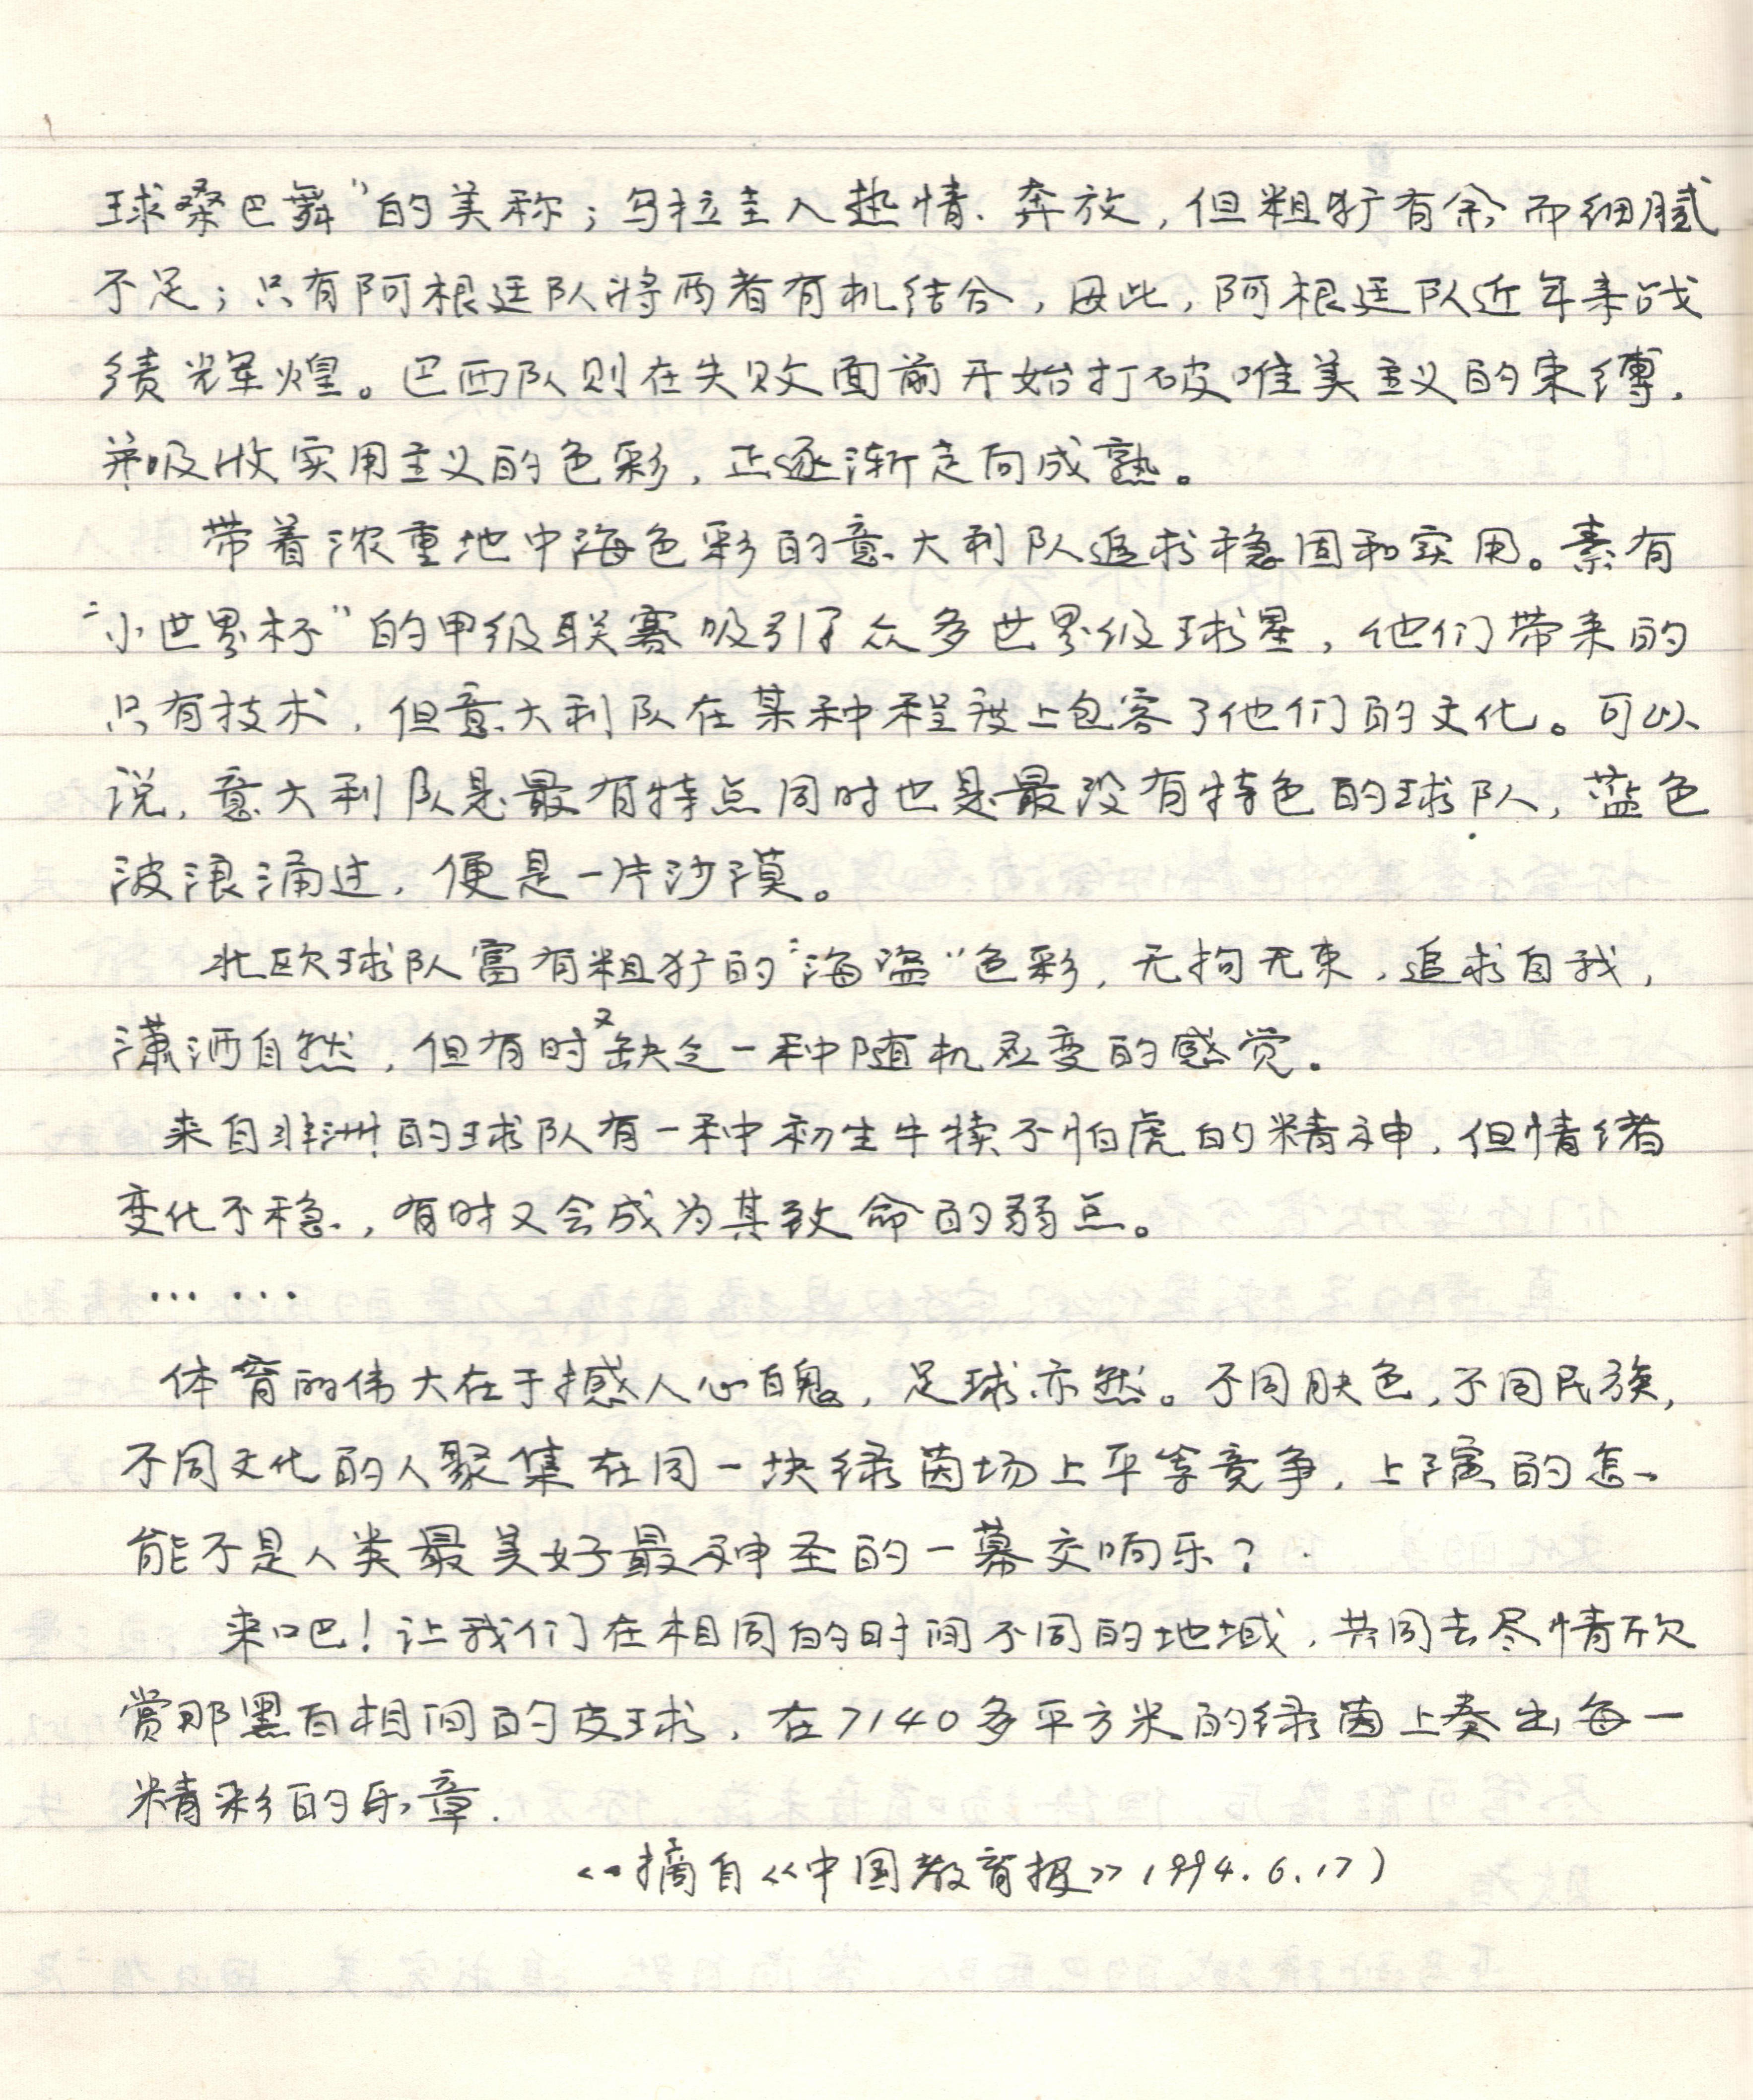 球桑巴舞”的美称；乌拉圭人热情、奔放，但粗犷有余而细腻
不足；只有阿根廷队将两者有机结合，因此，阿根廷队近年来战
绩辉煌。巴西队则在失败面前开始打破唯美主义的束缚，
并吸收实用主义的色彩，正逐渐走向成熟。
带着浓重地中海色彩的意大利队追求稳固和实用。素有
“小世界杯”的甲级联赛吸引了众多世界级球星，他们带来的
只有技术，但意大利队在某种程度上包容了他们的文化。可以
说，意大利队是最有特点同时也是最没有特色的球队，蓝色
波浪涌过，便是一片沙漠。
北欧球队富有粗犷的“海盗”色彩，无拘无束，追求自我，
潇洒自然，但有时又缺乏一种随机应变的感觉。
来自非洲的球队有一种初生牛犊不怕虎的精神，但情绪
变化不稳，有时又会成为其致命的弱点。
……
体育的伟大在于撼人心魄，足球亦然。不同肤色，不同民族，
不同文化的人聚集在同一块绿茵场上平等竞争，上演的怎
能不是人类最美好最神圣的一幕交响乐？
来吧！让我们在相同的时间不同的地域，共同去尽情欣
赏那黑白相间的皮球，在7140多平方米的绿茵上奏出每一
精彩的乐章.
摘自《中国教育报》1994.6.17）